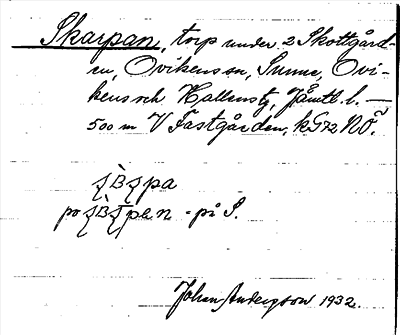 Skarpan, torp under 2 Skottgård-
en, Ovikens sn, Sunne, Ovi-
kens och Hallens tg, Jämtl. l. —
500 m V Fastgården, kG72 NÖ.
pa
po - på S.
Johan Andersson 1932.